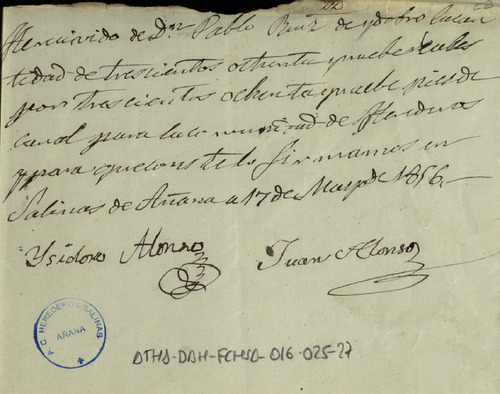 22
Herrecivido de Dn Pablo Ruiz de y dobro la can
tidad de trescientos ochenta y nuebe reales
por trescientos ochenta y nuebe pies de
canal para la comunidad de Herederos
y para que conste lo firmamos en
Salinas de Añana a 17 de Mayo de 1856.
Ysidoro Alonso Juan Alonso
F.C. HEREDEROS SALINAS
AÑANA
ATHA-DAH-FCHSA-016-025-27